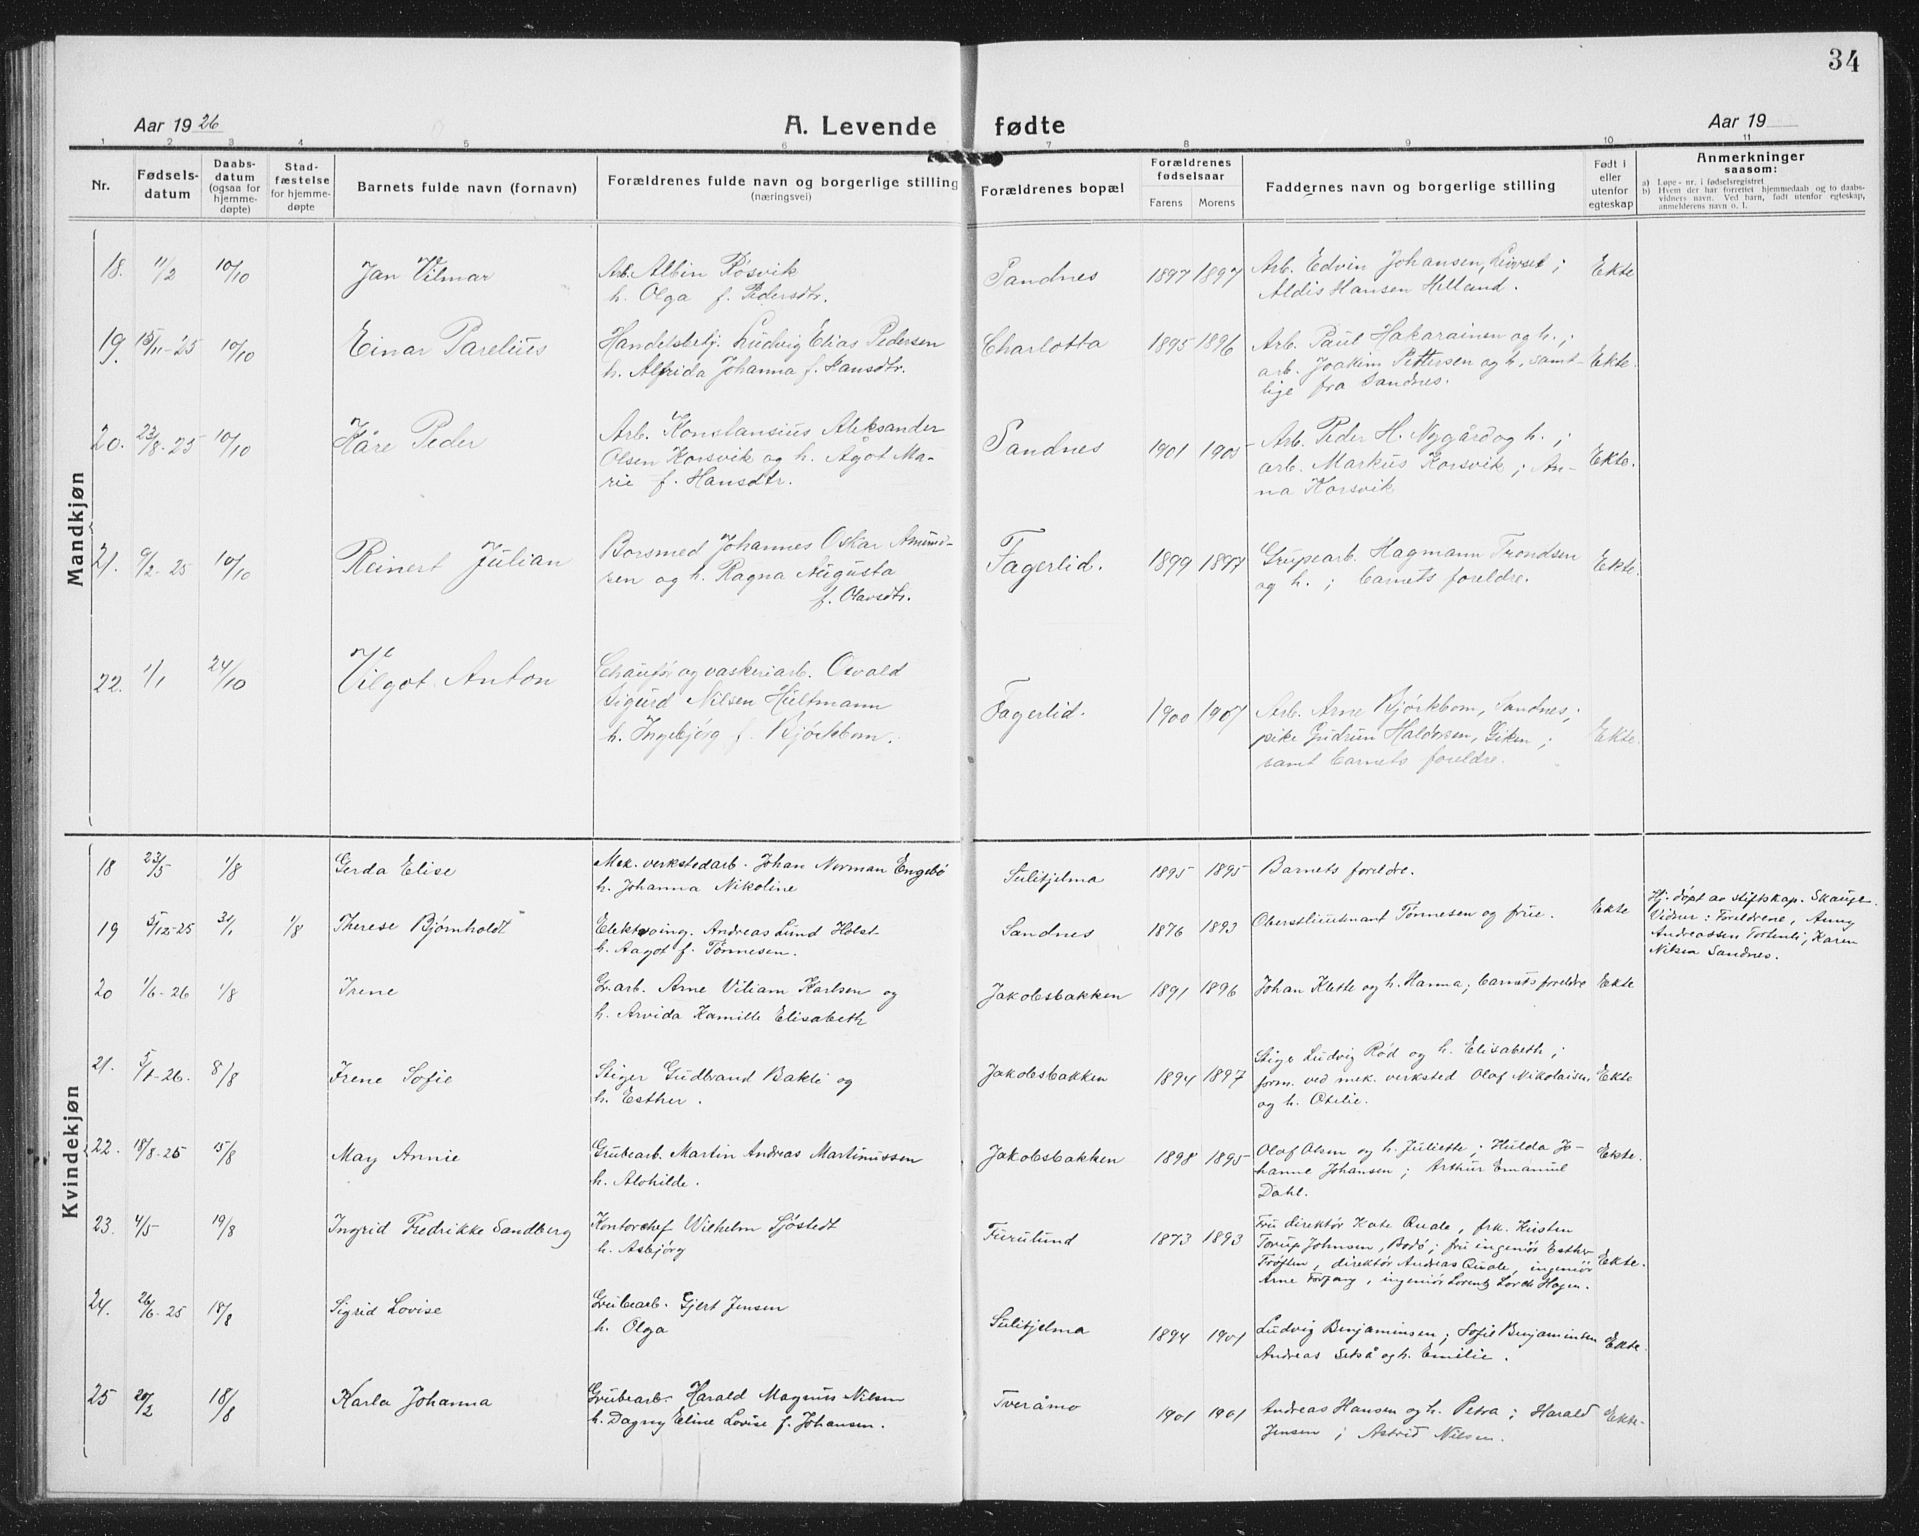 34
Aar 1926
A. Levende fødte
Aar 19
1 2 3 4 5 6 7 8 9 10 11
Nr.
Fødsels-
datum
Daabs-
datum
(ogsaa for
hjemme-
døpte)
Stad-
fæstelse
for hjemme-
døpte
Barnets fulde navn (fornavn)
Forældrenes fulde navn og borgerlige stilling
(næringsvei)
Forældrenes bopæl
Forældrenes
fødselsaar
Farens Morens
Faddernes navn og borgerlige stilling
Født i
eller
utenfor
egteskap
Anmerkninger
saasom:
a) Løpe-nr. i fødselsregistret
b) Hvem der har forrettet hjemmedaab og to daabs-
vidners navn. Ved barn, født utenfor egteskap,
anmelderens navn o. l.
Mandkjøn
18. 11/2 10/10 Jan Vilmar
Arb. Albin Røsvik
h. Olga f. Pedersdtr.
Sandnes 1897 1897
Arb. Edvin Johansen, ;
Aldis Hansen Helland.
Ekte
19. 15/11-25 10/10 Einar Parelius
Handelsbetj. Ludvig Elias Pedersen
h. Alfrida Johanna f. Hansdtr.
Charlotta 1895 1896
Arb. Paul Hakarainen og h.;
arb. Joakim Pettersen og h., samt-
lige fra Sandnes.
Ekte.
20. 23/8-25 10/10 Kåre Peder
Arb. Konstansius Aleksander
Olsen Korsvik og h. Ågot Ma-
rie f. Hansdtr.
Sandnes 1901 1905
Arb. Peder H. Nygård og h.;
arb. Markus Korsvik; An-
na Korsvik
Ekte.
21. 9/2-25 10/10 Reinert Julian
Borsmed Johannes Oskar Amund-
sen og h. Ragna Augusta
f. Olavsdtr.
Fagerlid. 1899 1897
Grupearb. Hagmann Trondsen
og h.; barnets foreldre.
Ekte.
22. 1/1 24/10 Vilgot Anton
Chaufør og vaskeriarb. Osvald
Sigurd Nilsen Hultmann
h. Ingebjørg f. Bjørkbom.
Fagerlid. 1900 1907
Arb. Arne Bjørkbom, Sandnes;
pike Gudrun Haldorsen, Giken;
samt barnets foreldre.
Ekte.
Kvindekjøn
18 23/5 1/8 Gerda Elise
Mek. verkstedarb. Johan Norman Engebø
h. Johanna Nikoline
Sulitjelma 1895 1895
Barnets foreldre.
19 5/12-25 31/1 1/8 Therese Bjørnholdt
Elektroing. Andreas Lund Holst
h. Aagot f. Tønnesen.
Sandnes 1876 1893
Oberstlieutnant Tønnesen og frue.
Ekte
Hj. døpt av stiftskap. Skauge.
Vidner: Foreldrene, Anny
Andreassen Fortunli, Karen
Nilsen Sandnes.
20 1/6-26 1/8 Irene
Gr.arb. Arne Viliam Karlsen og
h. Arvida Kamille Elisabeth
Jakobsbakken 1891 1896
Johan Klette og h. Hanna; barnets foreldre
Ekte
21. 5/1-26. 8/8 Irene Sofie
Stiger Gudbrand Bakli og
h. Esther.
Jakobsbakken 1894 1897
Stiger Ludvig Rød og h. Elisabeth;
form. ved mek. verksted Olaf Nikolaisen
og h. Otelie.
Ekte
22. 18/8-25 15/8 May Annie
Grubearb. Martin Andreas Martinussen
h. Alvhilde.
Jakobsbakken 1898 1895
Olaf Olsen og h. Juliette; Hulda Jo-
hanne Johansen; Arthur Emanuel
Dahl.
Ekte.
23. 4/5 19/8 Ingrid Fredrikke Sandberg
Kontorchef Wilhelm Sjøstedt
h. Asbjørg
Furulund 1873 1893
Fru direktør Kate Quale, frk. Kirsten
Torup Johnsen, Bodø; fru ingeniør Esther
Trøften, direktør Andreas Quale, ingeniør
Arne Forfang, ingeniør Lorentz Lorck Hagen.
Ekte.
24. 26/6-25 18/8 Sigrid Lovise
Grubearb. Gjert Jensen
h. Olga
Sulitjelma 1894 1901
Ludvig Benjaminsen; Sofie Benjaminsen
Andreas Setså og h. Emilie.
Ekte.
25 20/2 18/8 Karla Johanna
Grubearb. Harald Magnus Nilsen
h. Dagny Eline Lovise f. Johansen.
Tveråmo 1901 1901
Andreas Hansen og h. Petra; Harald
Jensen; Astrid Nilsen.
Ekte.